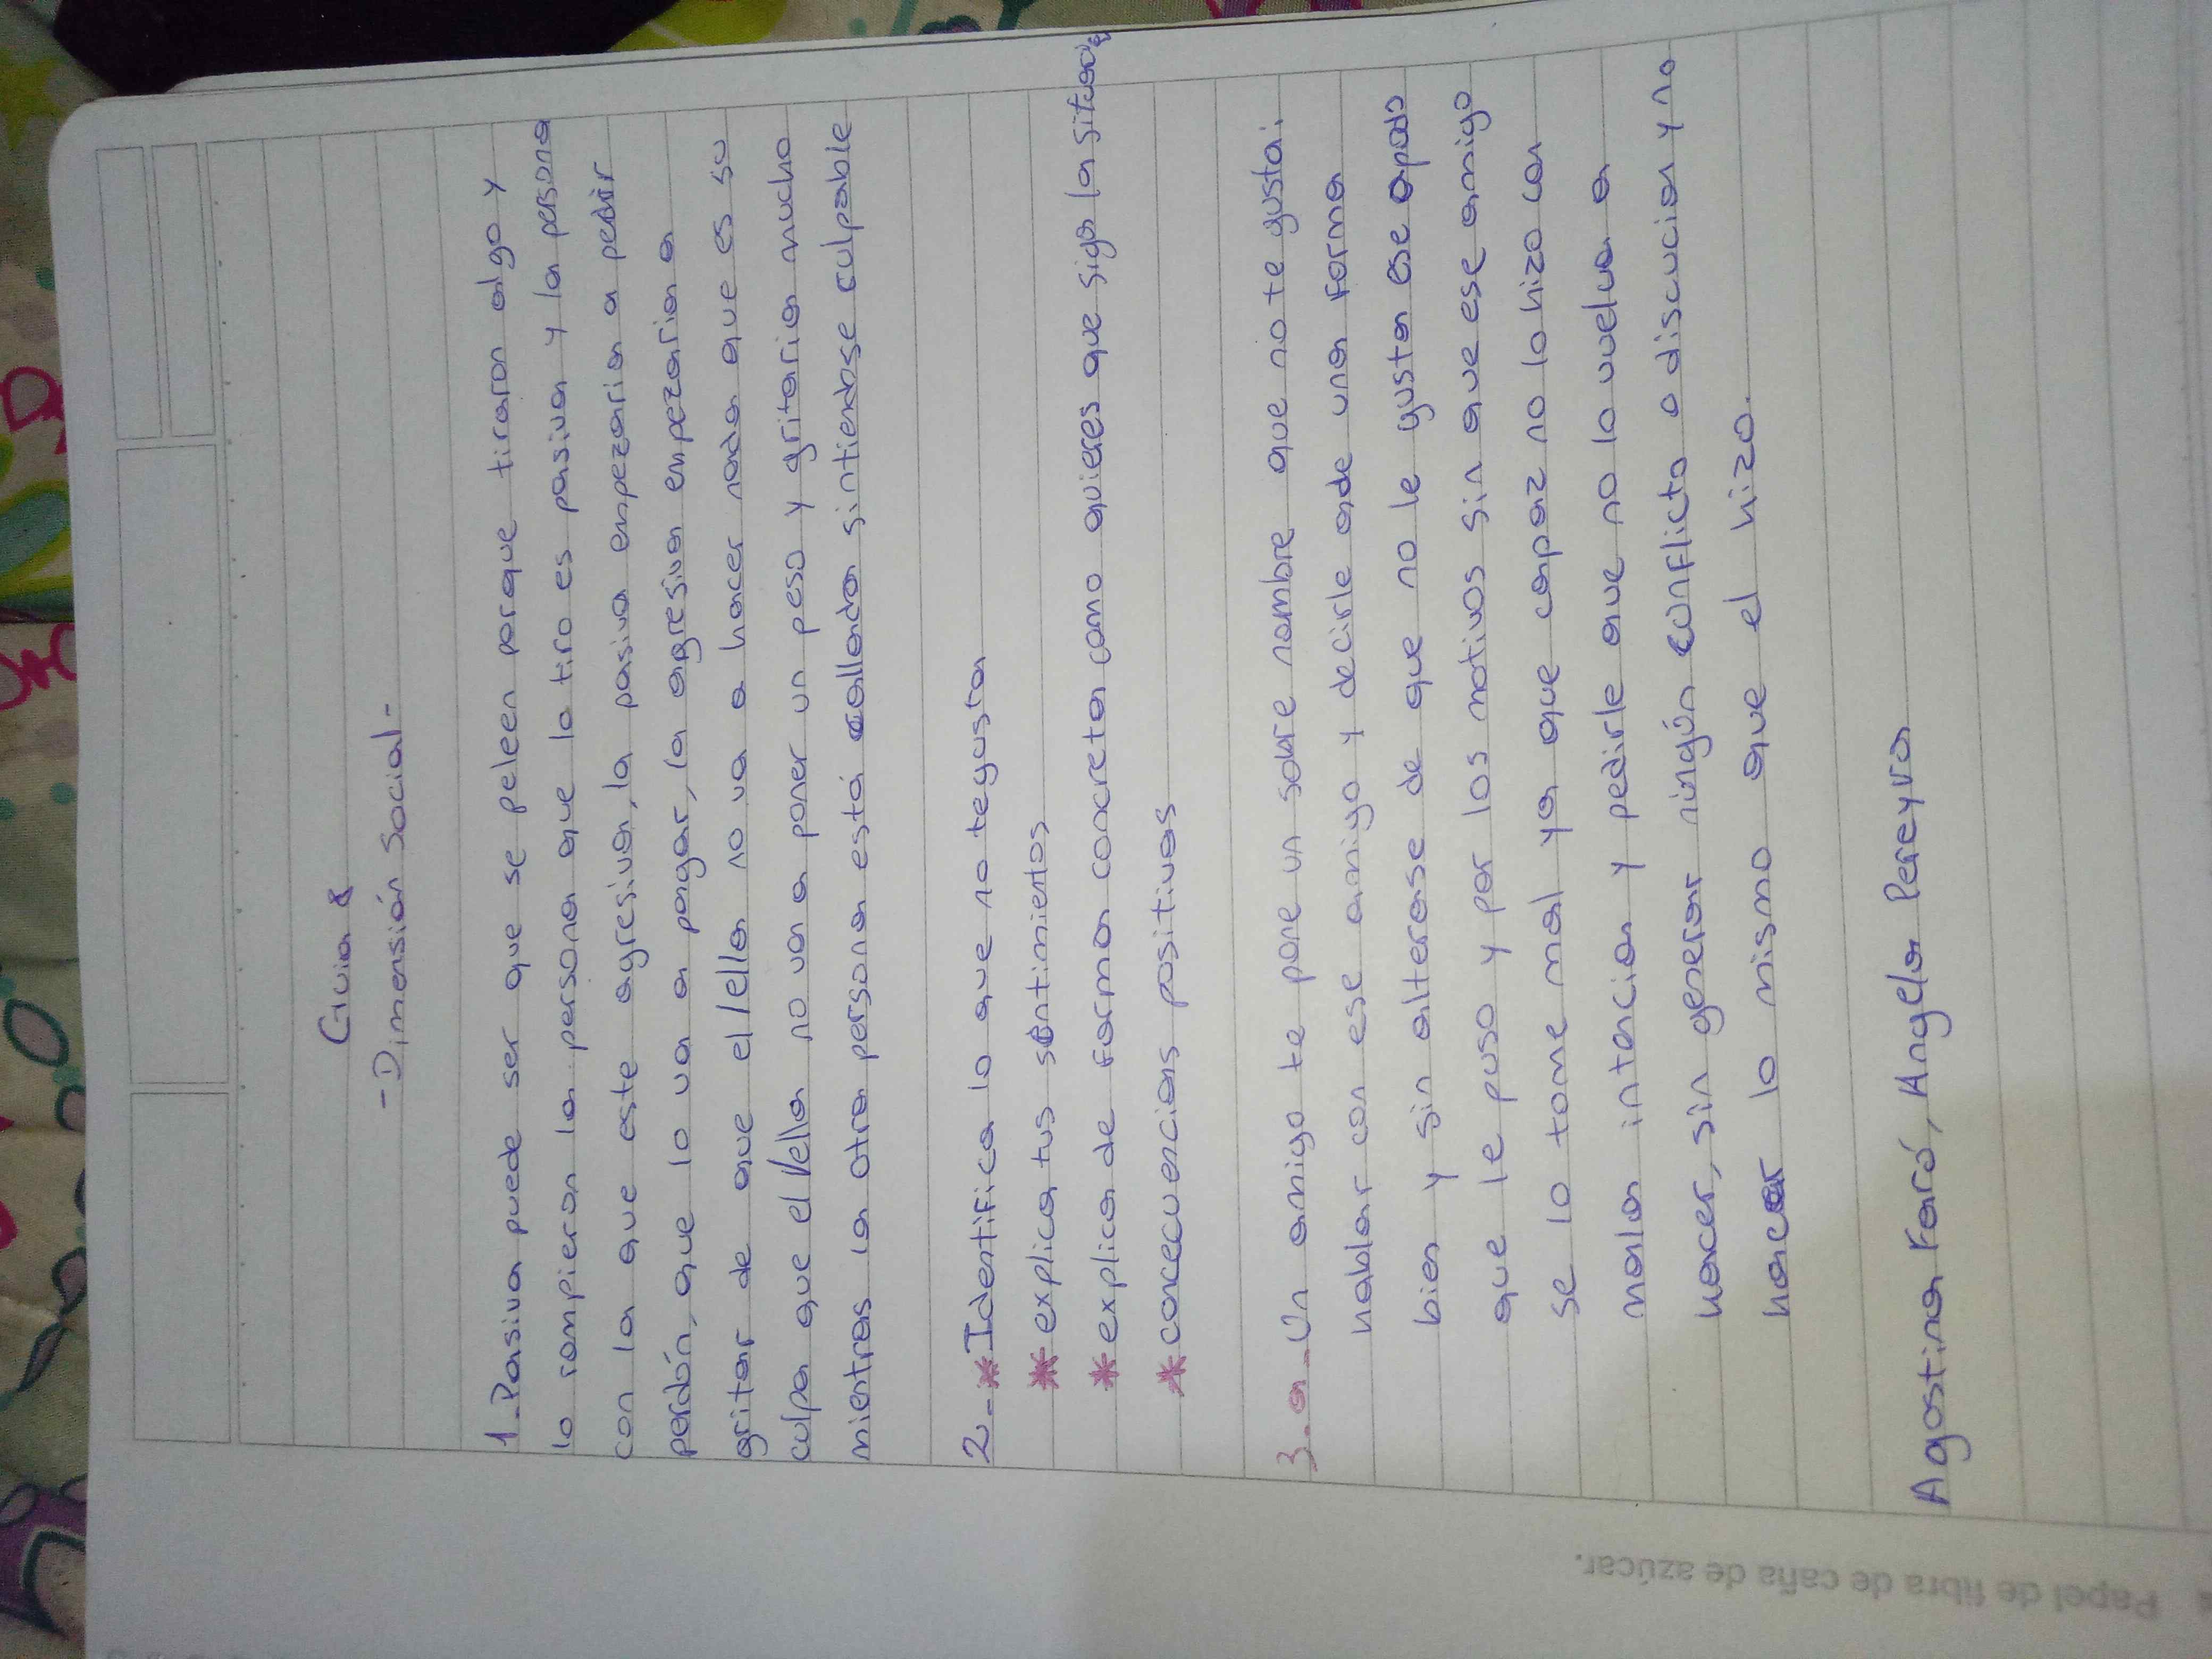 Guia 8
- Dimensión Social -
1_Pasiva puede ser que se peleen porque tiraron algo y
lo rompieron la persona que lo tiro es pasiva y la persona
con la que este agresiva, la pasiva empezaria a pedir
perdón, que lo va a pagar, la agresiva empezaria a
gritar de que el/ella no va a hacer nada que es su
culpa que el/ella no va a poner un peso y gritaria mucho
mientras la otra persona está callada sintiendose culpable
2_*Identifica lo que no te gusta
* explica tus sentimientos
* explica de forma concreta como quieres que siga la
* concecuencias positivas
3_a_Un amigo te pone un sobre nombre que no te gusta:
hablar con ese amigo y decirle ade una forma
bien y sin alterarse de que no le gusta ese apodo
que le puso y por los motivos sin que ese amigo
se lo tome mal ya que capaz no lo hizo con
mala intencion y pedirle que no lo vuelva a
hacer, sin generar ningún conflicto o discucion y no
hacer lo mismo que el hizo.
Agostina Faró, Angela Pereyra
Papel de fibra de caña de azúcar.